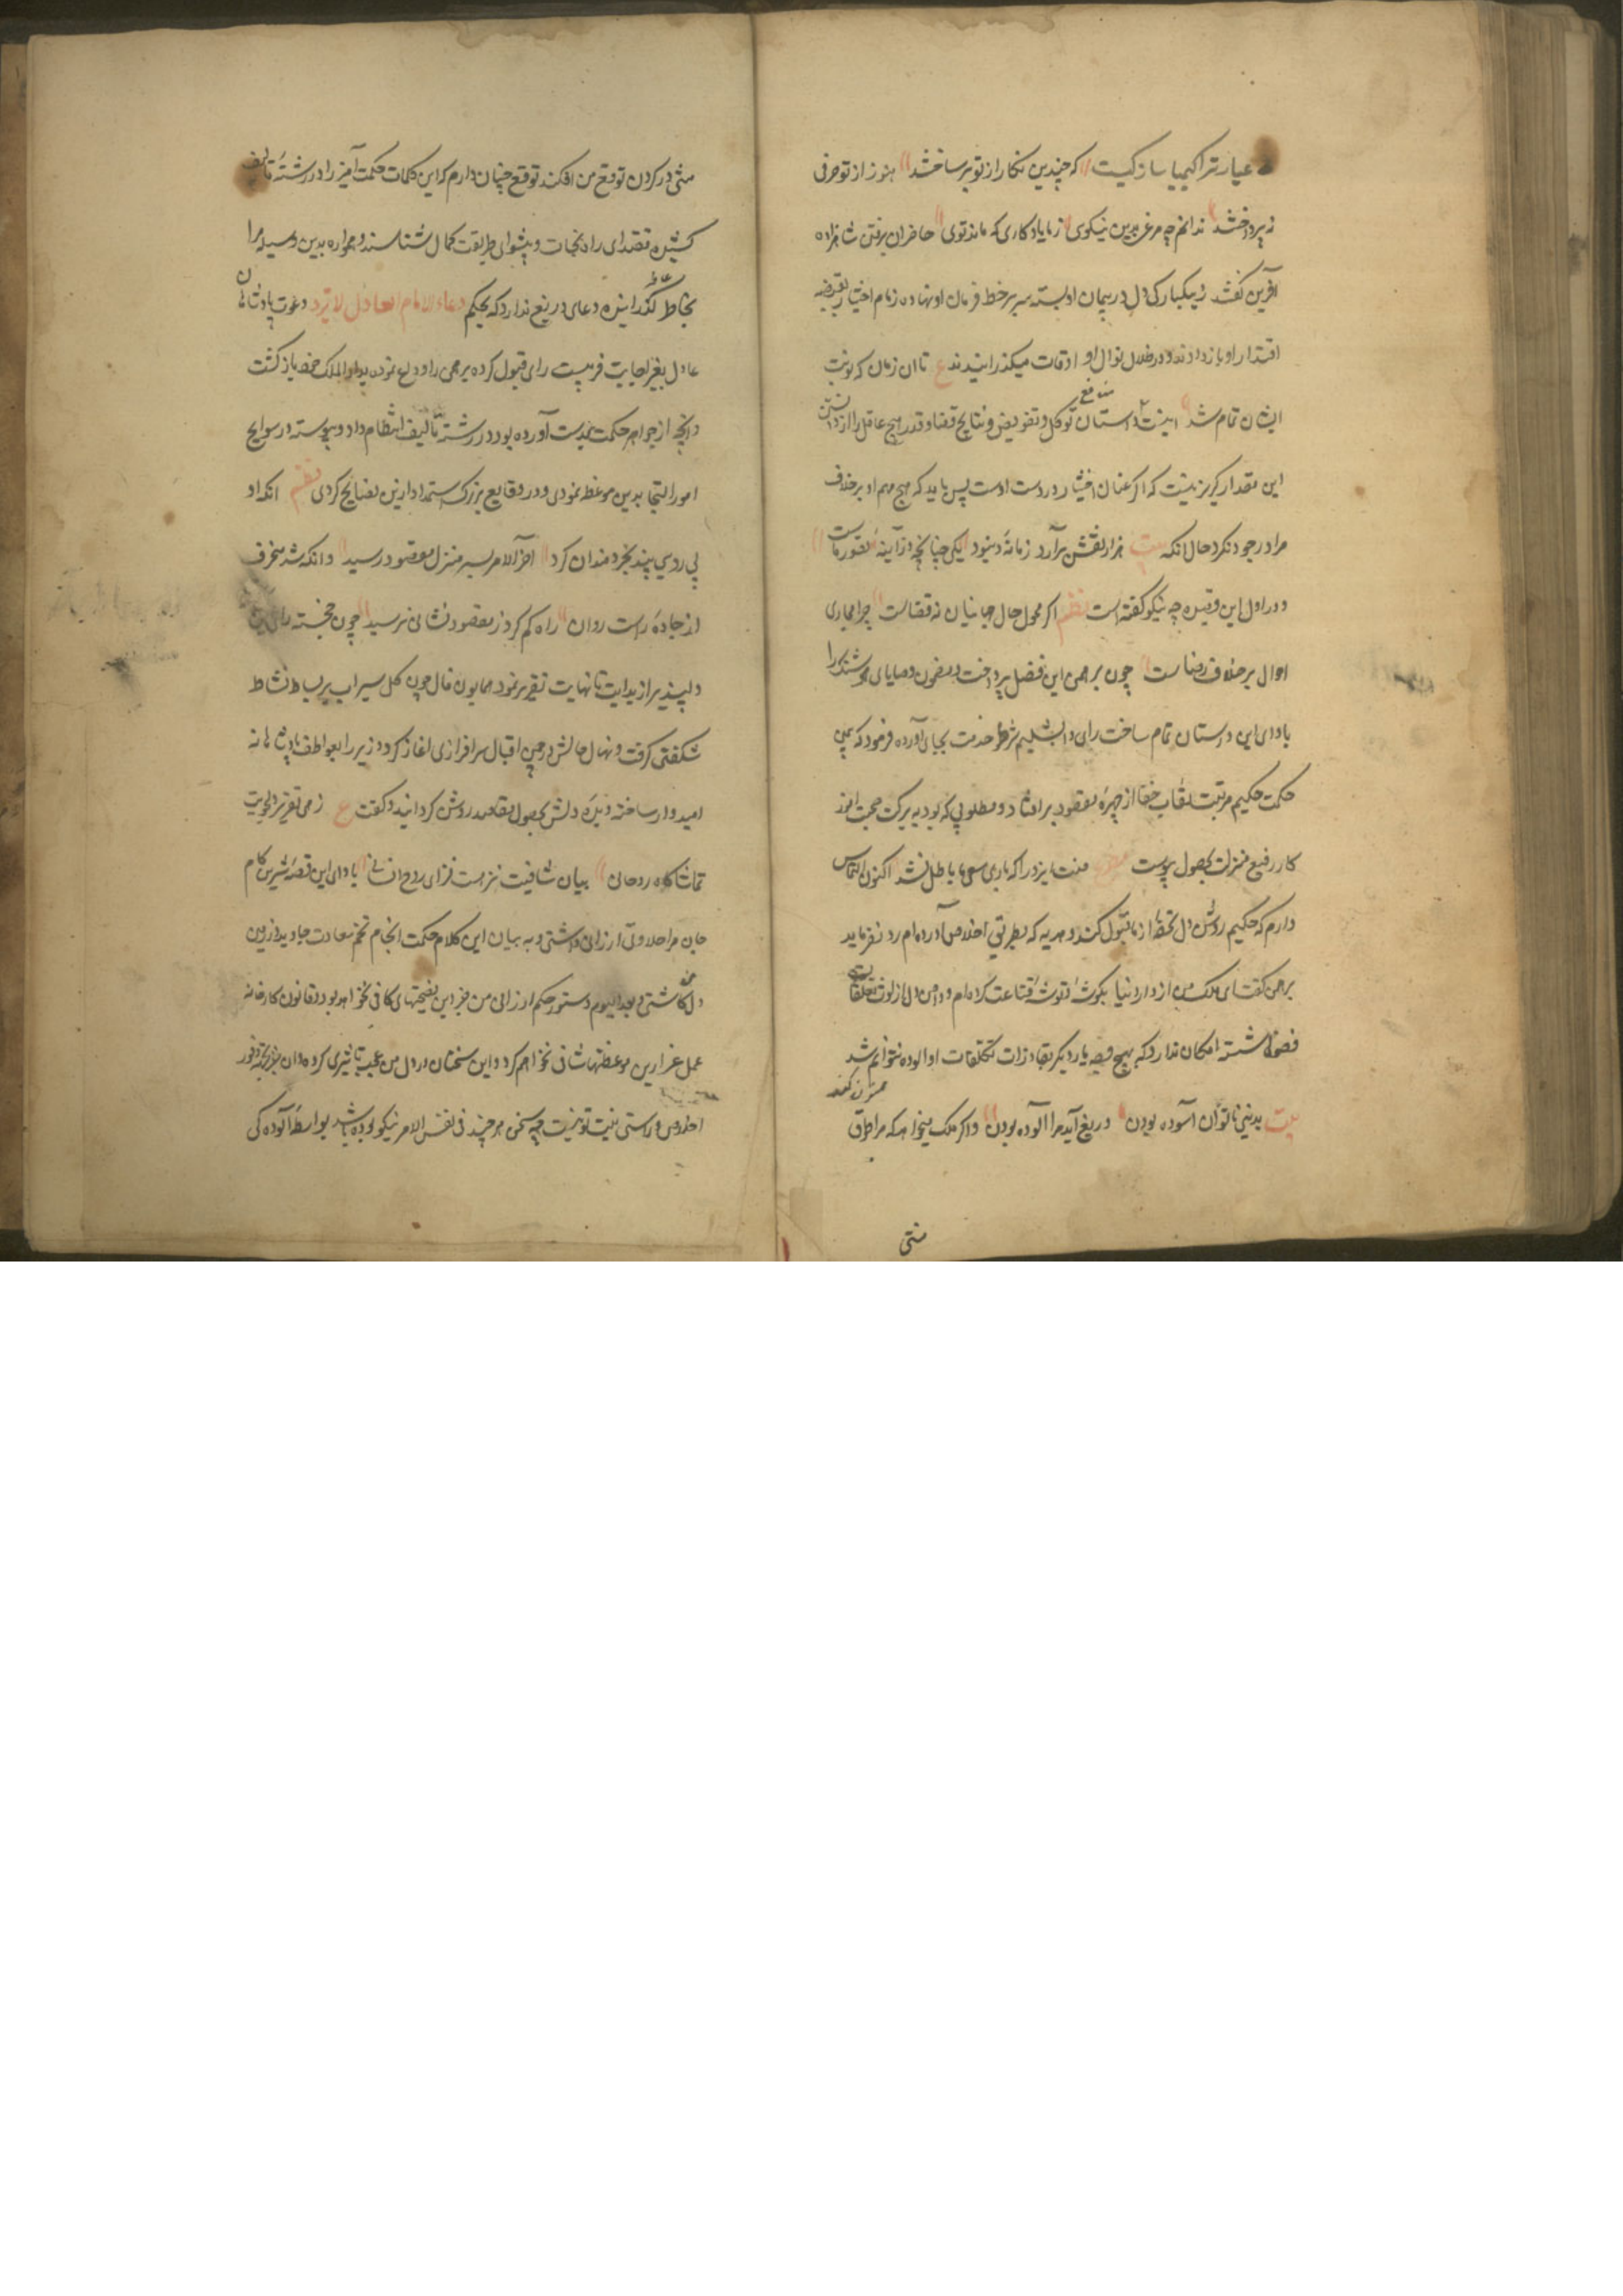 عیار ترا کیمیا ساز کیست که چندین نکار از تو بر ساختند هنوز از تو حرفی
نپرداختند ندانم چه مرغی بدین نیکوی ز ما یادکاری که ماند توی حاضران برفتن شاهزاده
آفرین کفتند و بیکبارکی دل در پیمان او بسته سر بر خط فرمان او نهادند و زمام اختیار بقبضه
اقتدار او باز دادند و در ظلال نوال او اوقات میکذرانیدند ع تا ان زمان که نوبت
ایشان تمام شد اینست داستان منافع توکل و تفویض و نتایج قضا و قدر و هیچ عاقل را از دانستن
این مقدار کزیر نیست که اکر عنان اختیار در دست اوست پس باید که هیچ مهم او بر خلاف
مراد وجود نکرد حال انکه بیت هزار نقش برآرد زمانه و نبود یکی چنانچه در آینه تصور ماست
و در اول این قصیده چه نیکو کفته است نظم اکر محول حال جهانیان نه قضاست چرا مجاری
احوال بر خلاف رضاست چون برهمن این فصل پرداخت و مضمون وصایای هوشنک را
بادای این داستان تمام ساخت رای دابشلیم شرط خدمت بجای آورده فرمود که بیمن
حکمت حکیم مرتبت نقاب خفا از چهره مقصود بر افتاد و مطلوبی که بود به برکت صحبت انور
کار رفیع منزلت بحصول پیوست منت ایزد را که باری سعی ما باطل نشد اکنون التماس
دارم که حکیم روشن دل تحفه از ما قبول کند و هدیه که بطریق اخلاص آورده ام رد نفرماید
برهمن کفت ای ملک من از دار دنیا بکوشه و توشه قناعت کرده ام و دامن دل از لوث تعلقات
فضول شسته امکان ندارد که بهیچ وجه بار دیکر بقاذورات تکلفات او الوده توانم شد
بیت بدینی ناتوان آسوده بودن دریغ آید مرا آلوده بودن و اکر ملک میخواهد که مرا طوق
منتی
منتی در کردن توقع من افکند توقع چنان دارم که این کلمات حکمت آمیز را در رشته تالیف
کشیده مقتدای راه نجات و پیشوای طریقت کمال شناسند و همواره بدین وسیله مرا
بخاطر عاطر کذرانیده دعای دریغ ندارد که بحکم دعاء الامام العادل لا یرد دعوت پادشاهان
عادل بعز اجابت قرینست رای قبول کرده برهمن را وداع نموده بدار الملک خود باز کشت
و آنچه از جواهر حکمت بدست آورده بود در رشته تالیف انتظام داد و پیوسته در سوانح
امور التجا بدین موعظ نمودی و در وقایع بزرک استمداد ازین نصایح کردی نظم انکه او
پی روی پند خردمندان کرد آخر الامر بسر منزل مقصود رسید و انکه شد منحرف
از جاده راست روان راه کم کرد و ز مقصود نشانی نرسید چون خجسته رای این
دلپذیر از بدایت تا نهایت تقریر نمود همایون فال چون کل سیراب بر بساط نشاط
شکفتن کرفت و نهال حالش در چمن اقبال سرافرازی اغاز کرد وزیر را بعواطف پادشاهانه
امیدوار ساخته دیده دلش بحصول مقاصد روشن کردانید و کفت ع زهی تقریر دلجویت
تماشاکاه روحانی بیان شافیت نزهت فزای روح انسانی بادای این قصه شیرین کام
جان مرا حلاوتی ارزانی داشتی و به بیان این کلام حکمت انجام تخم سعادت جاوید در زمین
دل من کاشتی و بعد الیوم دستور حکم ارزانی من جز این نصیحتهای کافی نخواهد بود و قانون کارخانه
عمل غیر ازین موعظتها شافی نخواهم کرد و این سخنان در دل من عجب تاثیری کرده و آن جز نتیجه وفور
اخلاص و راستی نیت تو نیست چه سخن هر چند فی نفس الامر نیکو بوده باشد بواسطه آلوده کی